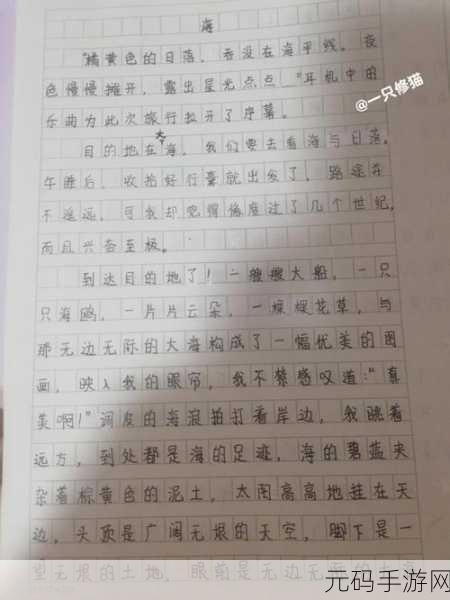 海
“橘黄色的日落,吞没在海平线。夜
色慢慢摊开,露出星光点点…”耳机中的
乐曲为此次旅行拉开了序幕。
@一只修猫
目的地在大海,我们要去看海与日落。
午睡后,收拾好行囊就出发了,路途并
不遥远,可我却觉得像度过了几个世纪,
而且兴奋至极。
到达目的地了!一艘艘大船,一只
只海鸥,一片片云朵,一棵棵花草,与
那无边无际的大海构成了一幅优美的图
画,映入我的眼帘,我不禁感叹道:“真
美啊!”调皮的海浪拍打着岸边,我眺着
远方,到处都是海的足迹,海的碧蓝夹
杂着棕黄色的泥土,太阳高高地挂在天
边,头顶是广阔无垠的天空,脚下是一
望无垠的土地,眼前是无边无际的大海
元码手游网